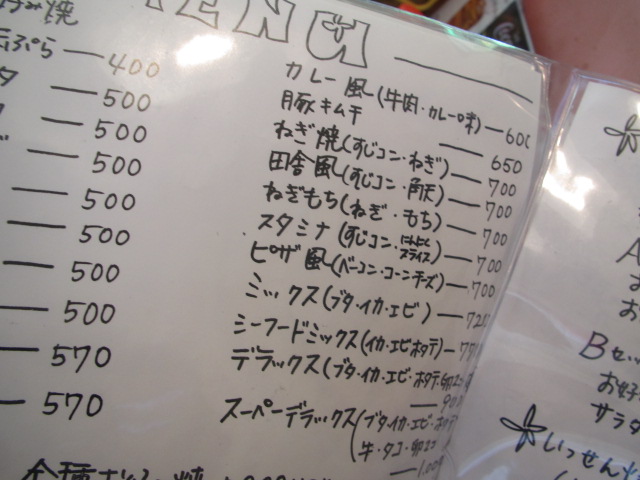 MENU
ぷら — 400
500
500
500
500
500
500
500
570
570
カレー風(牛肉・カレー味) — 600
豚キムチ — 650
ねぎ焼(すじコン・ねぎ) — 700
田舎風(すじコン・角天) — 700
ねぎもち(ねぎ・もち) — 700
スタミナ(すじコン・にんにくスライス) — 700
ピザ風(ベーコン・コーン・チーズ) — 700
ミックス(ブタ・イカ・エビ) — 720
シーフードミックス(イカ・エビ・ホタテ) — 7
デラックス(ブタ・イカ・エビ・ホタテ・卵2コ
— 90
スーパーデラックス(ブタ・イカ・エビ・ホタテ
牛・タコ・卵2コ
— 1,00
A
お
お
Bセッ
お好
サラダ
いっせん